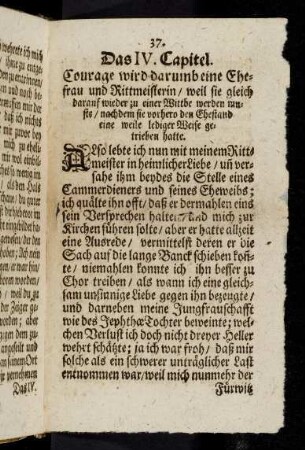 37.
Das IV. Capitel.
Courage wird darumb eine Ehe-
frau und Rittmeisterin / weil sie gleich
darauf wieder zu einer Wittbe werden mu-
ste / nachdem sie vorhero den Ehestand
eine weile lediger Weise ge-
trieben hatte.
Also lebte ich nun mit meinem Ritt-
meister in heimlicher Liebe / uñ ver-
sahe ihm beydes die Stelle eines
Cammerdieners und seines Eheweibs;
ich quälte ihn offt / daß er dermahlen eins
sein Versprechen halten / und mich zur
Kirchen führen solte / aber er hatte allzeit
eine Ausrede / vermittelst deren er die
Sach auf die lange Banck schieben kon̄-
te / niemahlen konnte ich ihn besser zu
Chor treiben / als wann ich eine gleich-
sam unsinnige Liebe gegen ihn bezeugte /
und darneben meine Jungfrauschafft
wie des Jephthæ Tochter beweinte; wel-
chen Verlust ich doch nicht dreyer Heller
wehrt schätzte; ja ich war froh / daß mir
solche als ein schwerer unträglicher Last
entnommen war / weil mich nunmehr der
Fürwitz
Das IV.